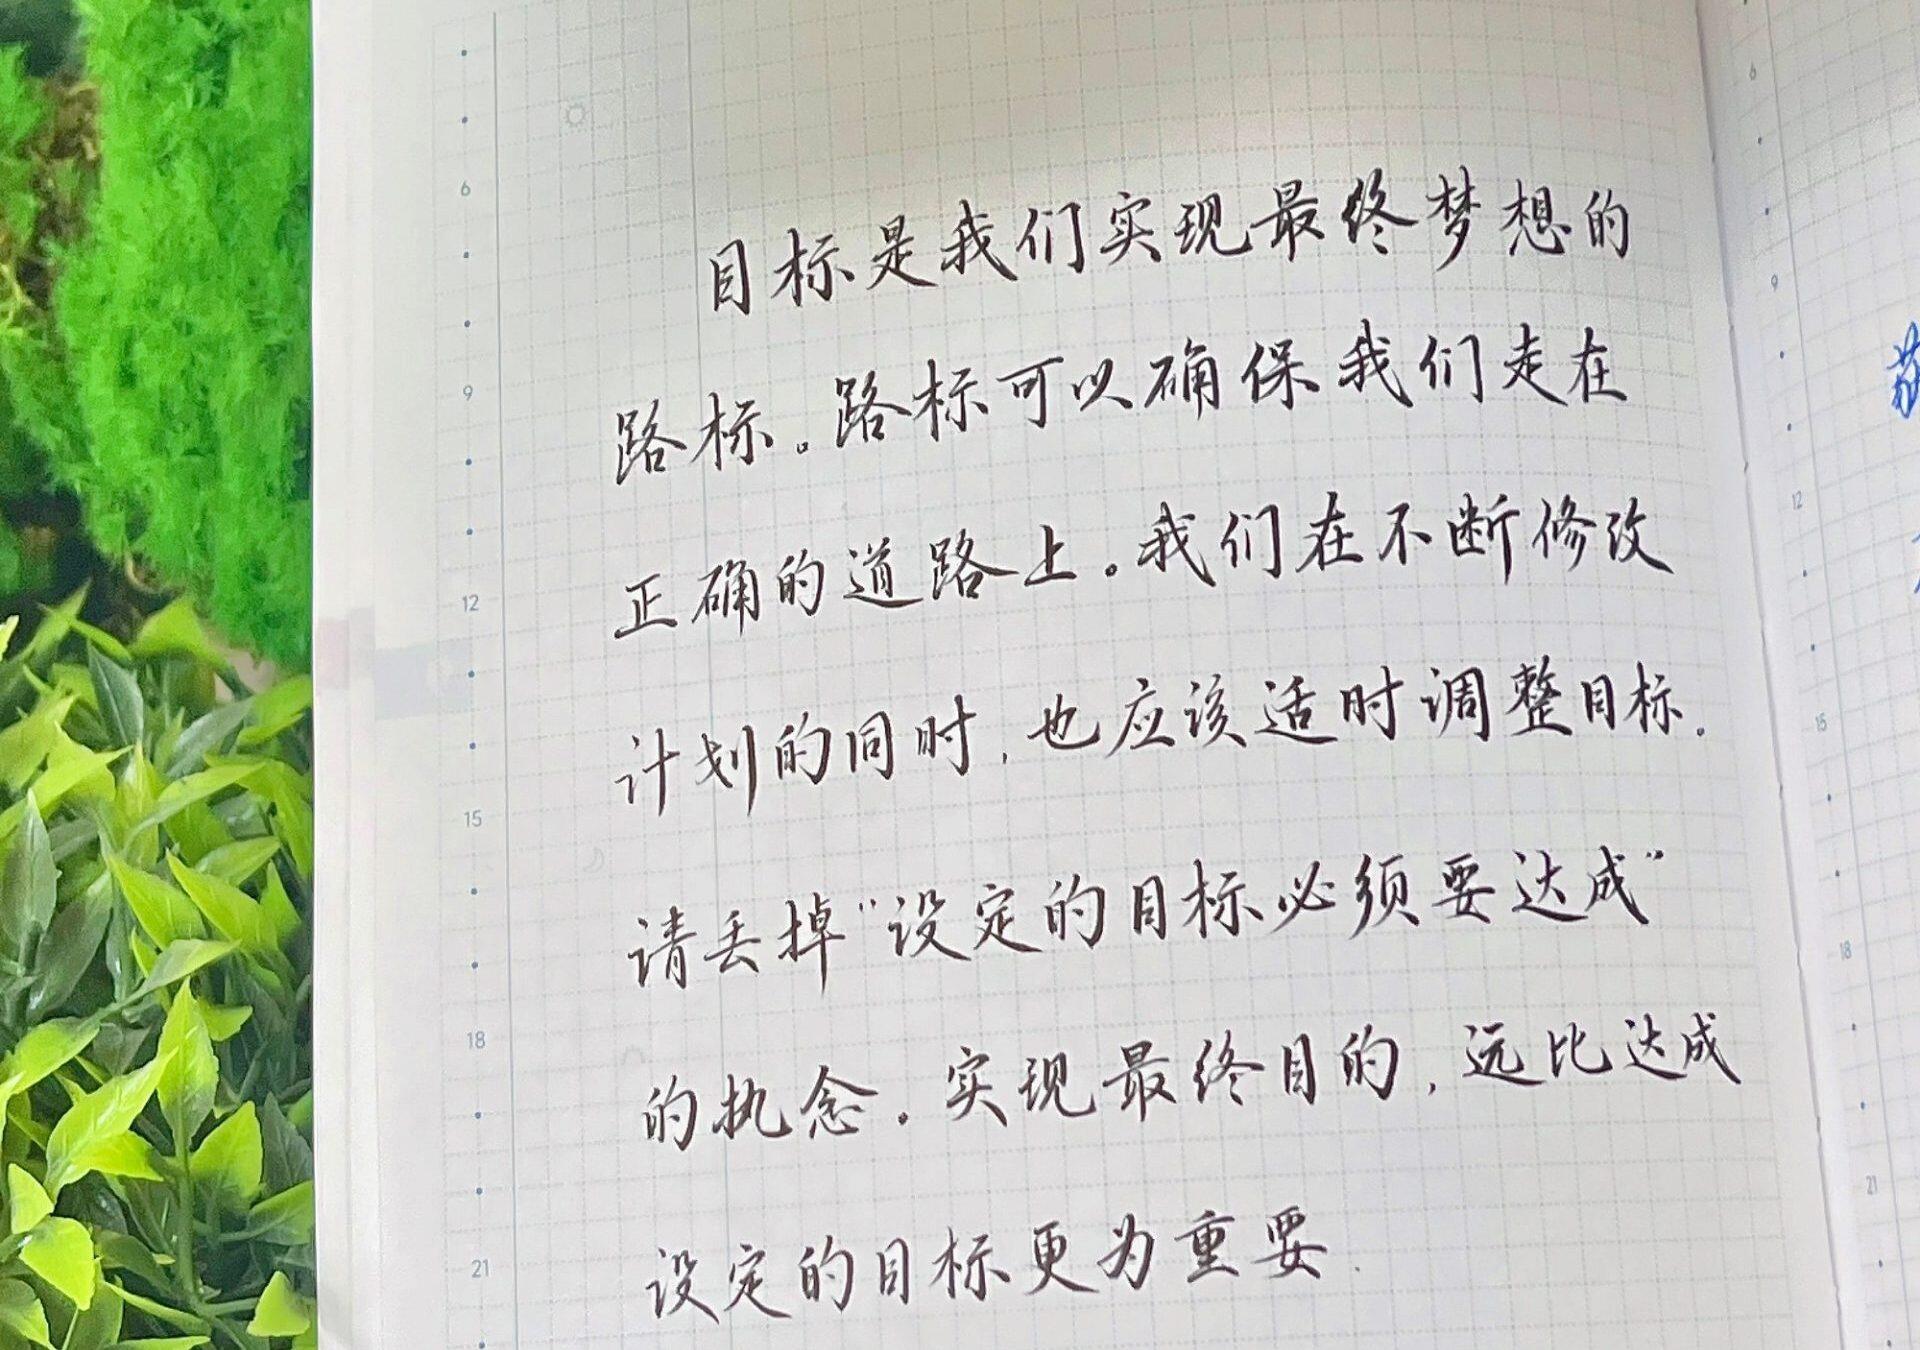 目标是我们实现最终梦想的
路标。路标可以确保我们走在
正确的道路上。我们在不断修改
计划的同时,也应该适时调整目标.
请丢掉“设定的目标必须要达成”
的执念。实现最终目的,远比达成
设定的目标更为重要.
6
9
12
15
18
21
6
9
12
15
18
21